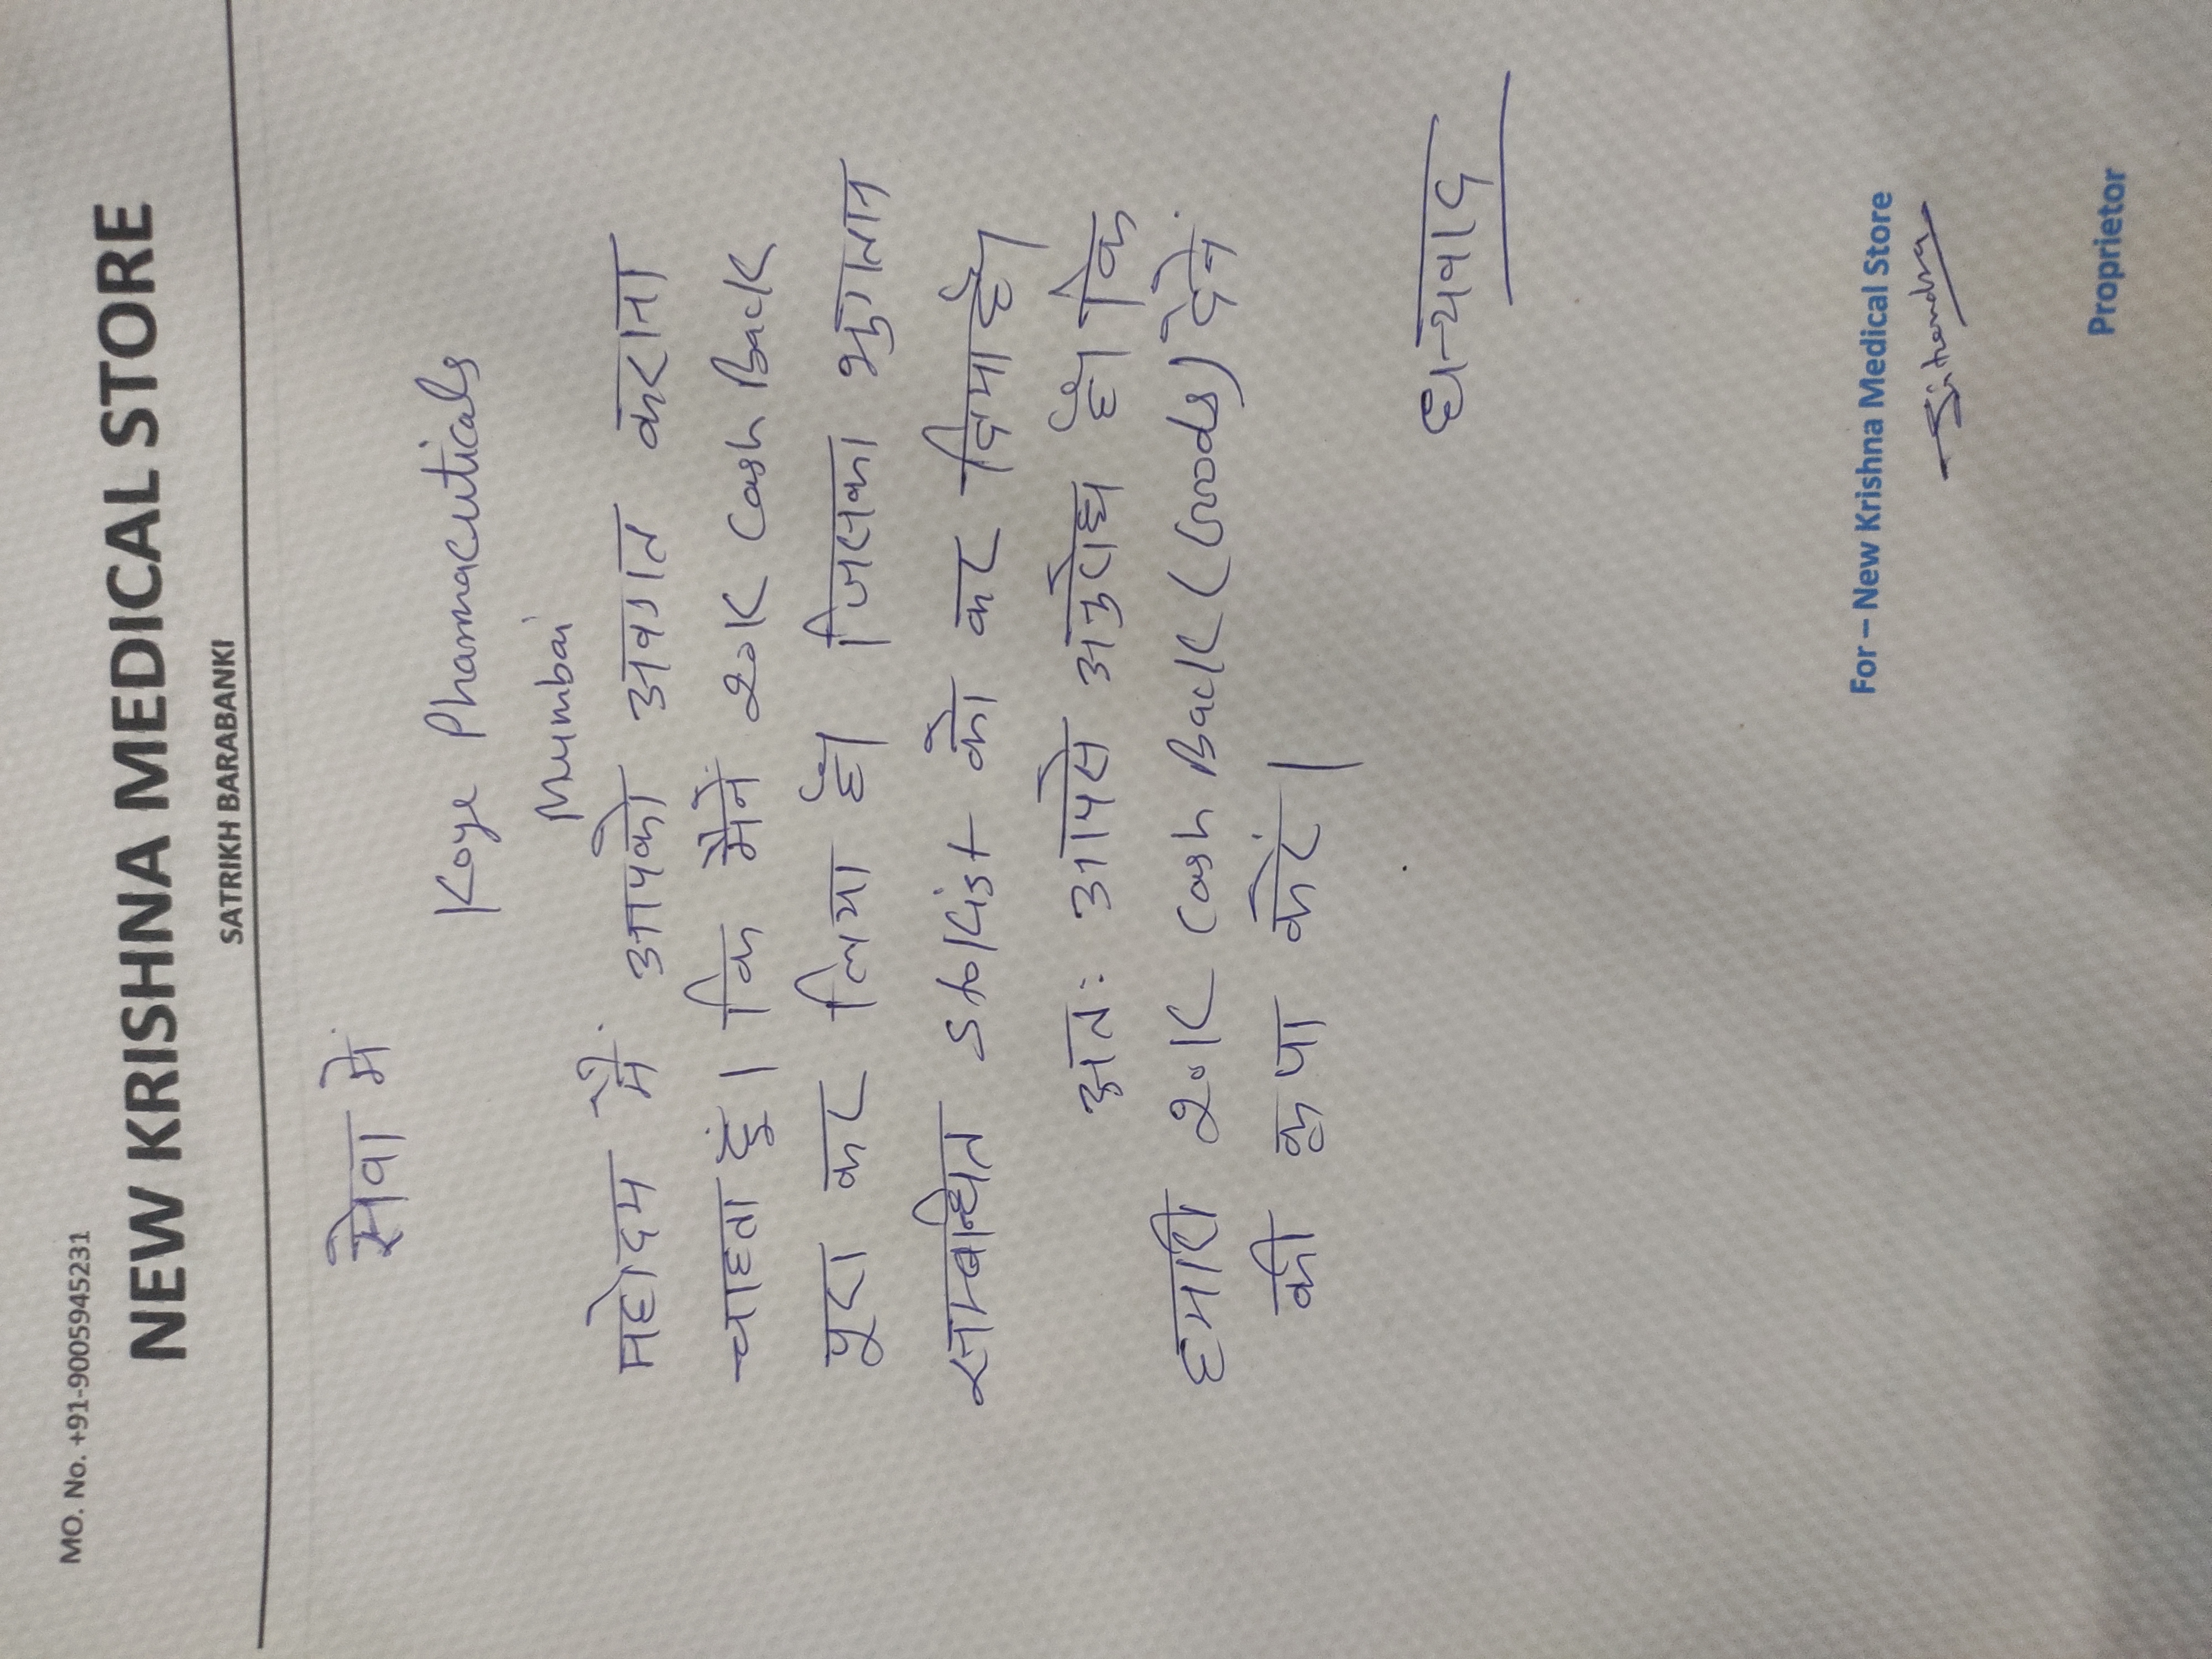 MO. No. +91-9005945231
NEW KRISHNA MEDICAL STORE
SATRIKH BARABANKI
सेवा में
Koye Pharmaceuticals
Mumbai
महोदय मैं आपको अवगत कराना
चाहता हूं। कि मैने 20K Cash Back
पूरा कर लिया है। जिसका भुगतान
सम्बन्धित Stokist को कर दिया है।
अतः आपसे अनुरोध है। कि
हमारी 20K Cash Back (Goods) देने
की कृपा करें।
धन्यवाद
For – New Krishna Medical Store
Jitendra
Proprietor